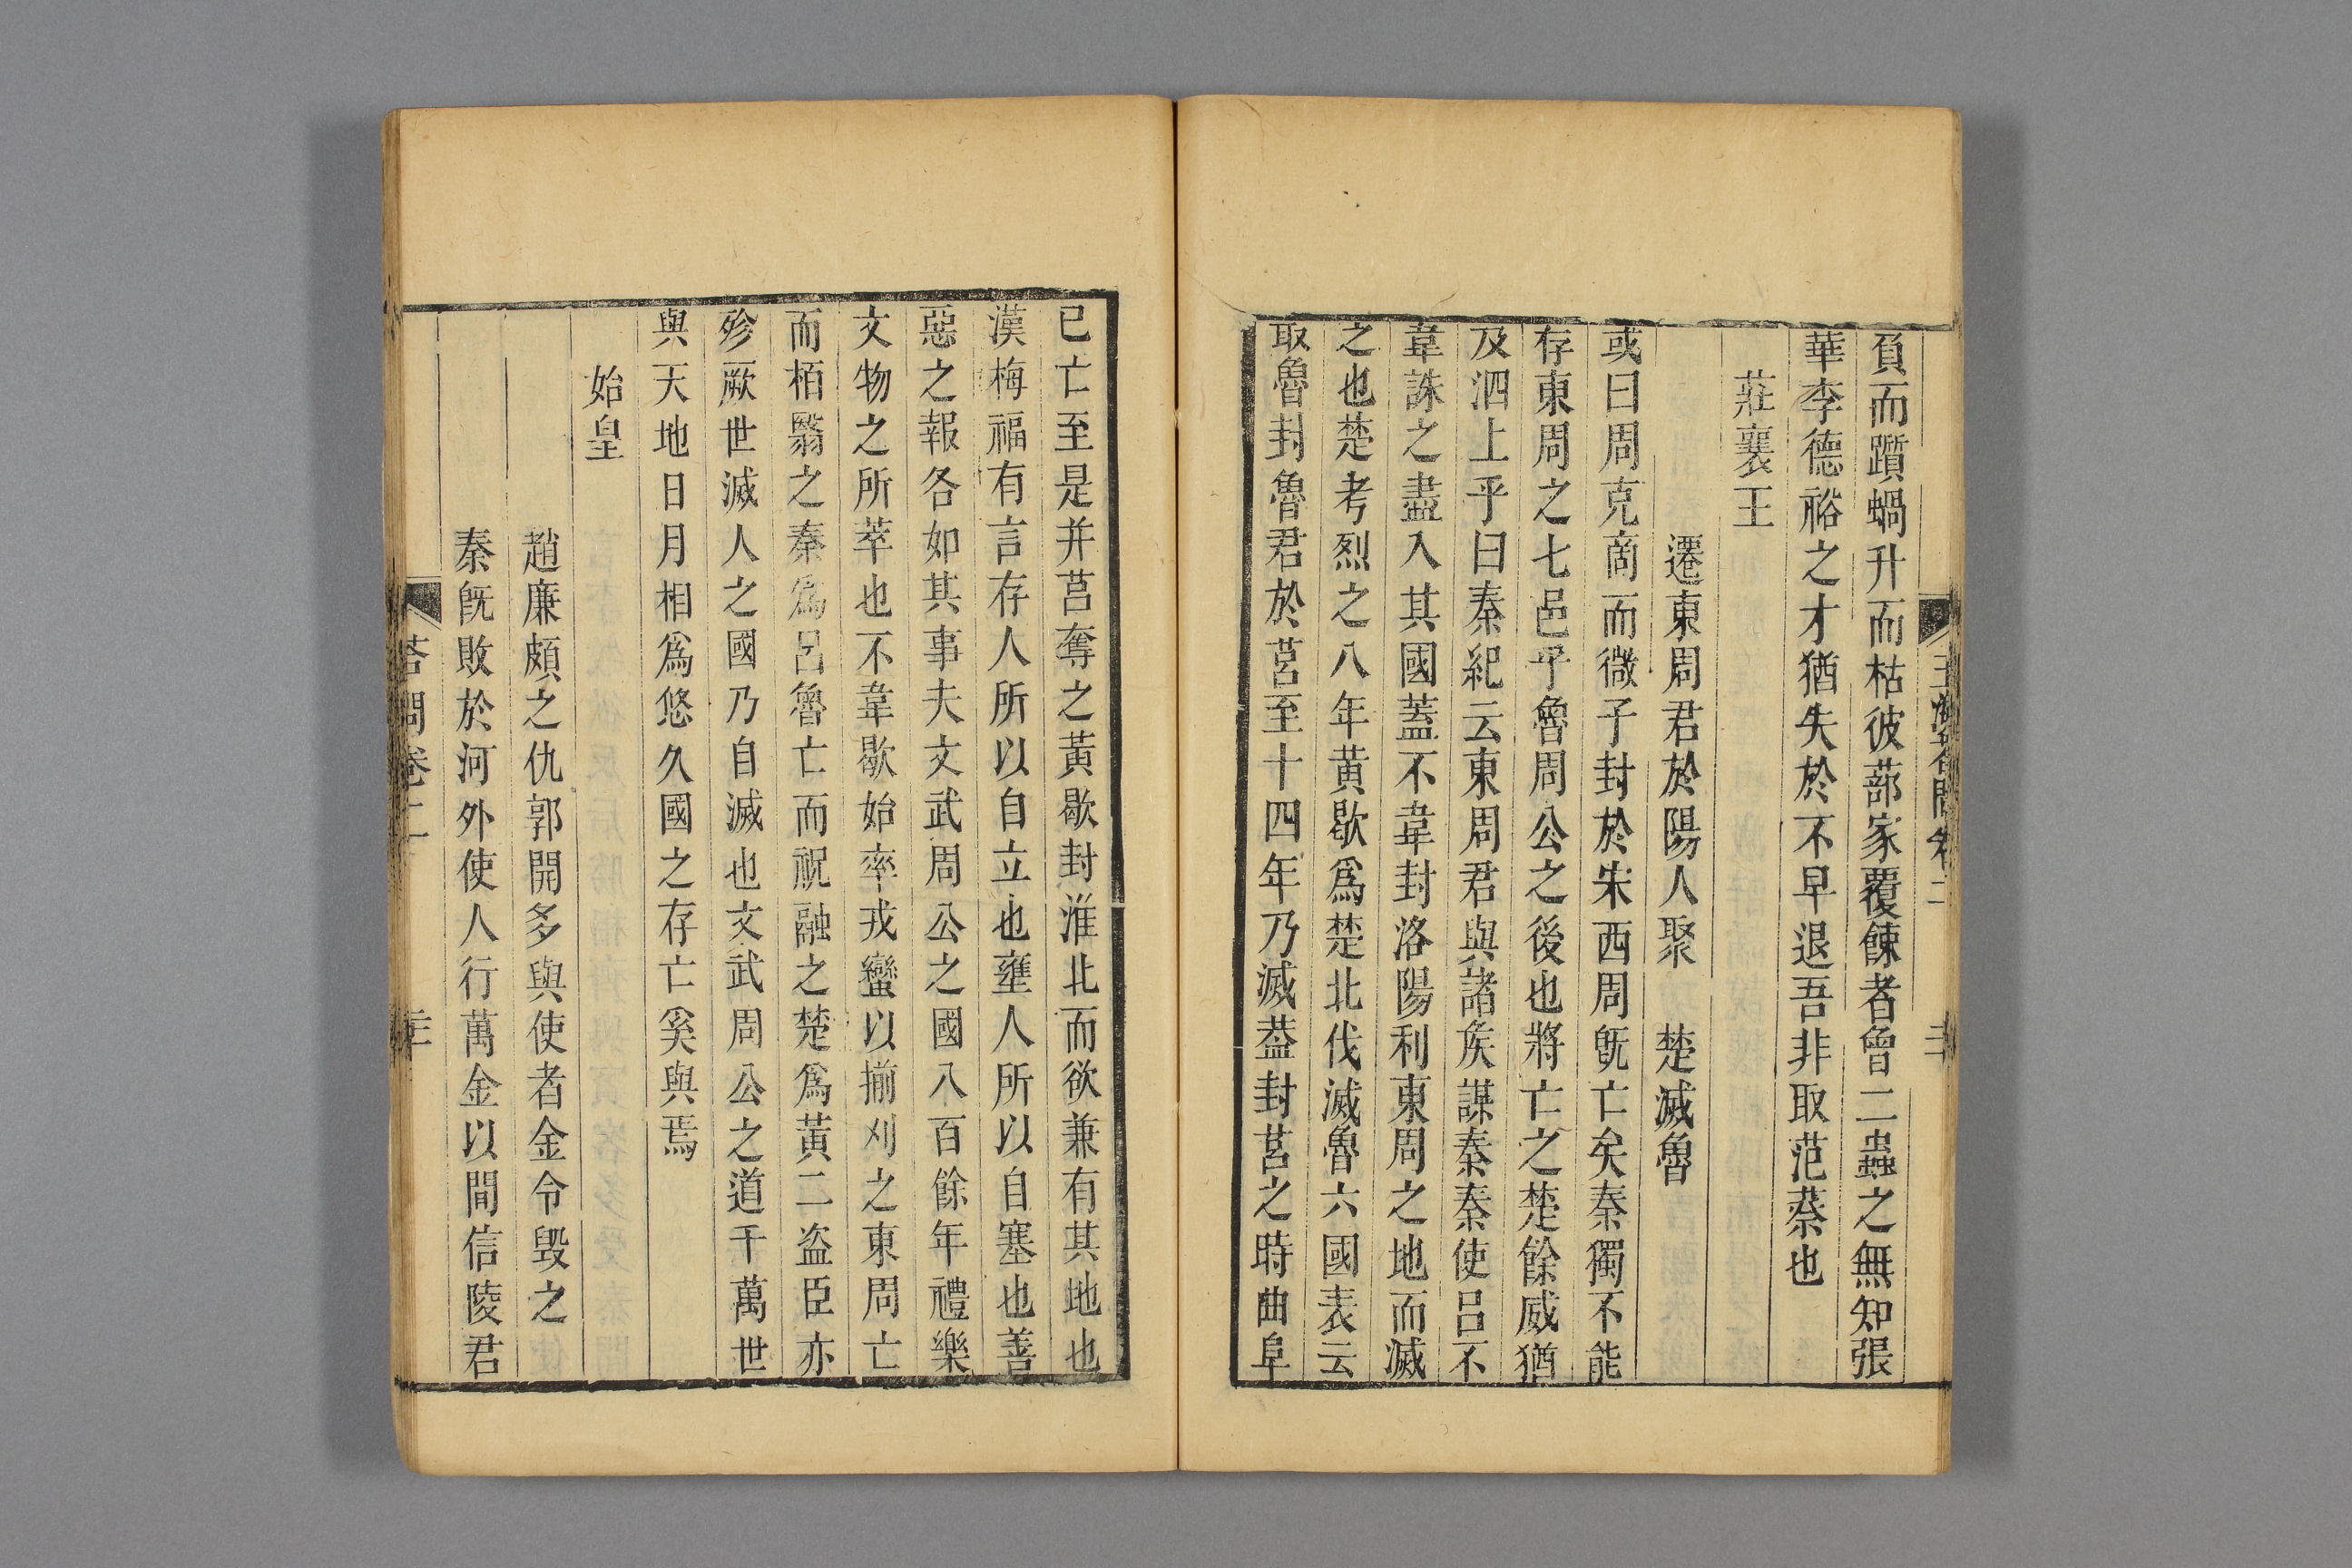 負而躓蝸升而枯彼蔀家覆餗者曾二蟲之無知張
華李德裕之才猶失於不早退吾非取范蔡也
莊襄王
遷東周君於陽人聚　楚滅魯
或曰周克商而微子封於宋西周旣亡矣秦獨不能
存東周之七邑乎魯周公之後也將亡之楚餘威猶
及泗上乎曰秦紀云東周君與諸矦謀秦秦使呂不
韋誅之盡入其國蓋不韋封洛陽利東周之地而滅
之也楚考烈之八年黄歇爲楚北伐滅魯六國表云
取魯封魯君於莒至十四年乃滅葢封莒之時曲阜
已亡至是并莒奪之黃歇封淮北而欲兼有其地也
漢梅福有言存人所以自立也壅人所以自塞也善
惡之報各如其事夫文武周公之國八百餘年禮樂
文物之所萃也不韋歇始率戎蠻以揃刈之東周亡
而栢翳之秦爲呂魯亡而祝融之楚爲黃二盗臣亦
殄厥世滅人之國乃自滅也文武周公之道千萬世
與天地日月相爲悠久國之存亡奚與焉
始皇
趙廉頗之仇郭開多與使者金令毁之
秦旣敗於河外使人行萬金以間信陵君
答問卷二